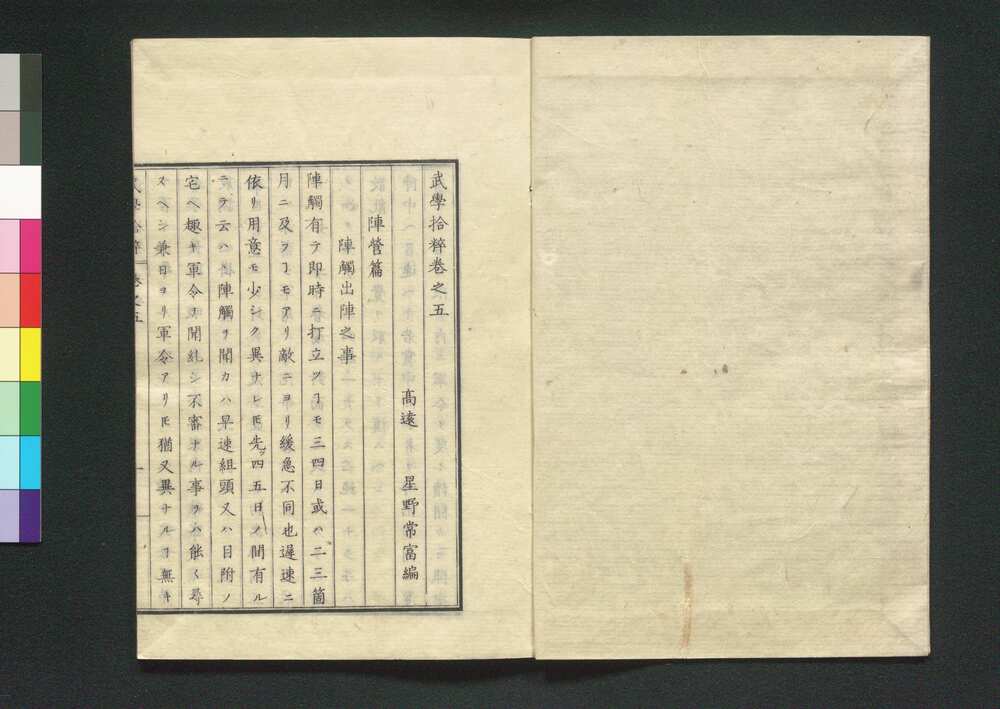 武學拾粹卷之五
高遠　星野常富編
陣營篇
陣觸出陣之事
陣觸有テ即時ニ打立ツヿモ三四日或ハ二三箇
月ニ及フヿモアリ敵ニヨリ緩急不同也遲速ニ
依リ用意モ少シク異ナレ𪜈先ツ四五日ノ間有ル
ニテ云ハ偖陣觸ヲ聞カハ早速組頭又ハ目附ノ
宅ヘ趣キ軍令ヲ聞糺シ不審ナル事ヲハ能く尋
スヘシ兼日ヨリ軍令アリ𪜈猶又異ナルヿ無キ
武學拾粹 卷之五 一